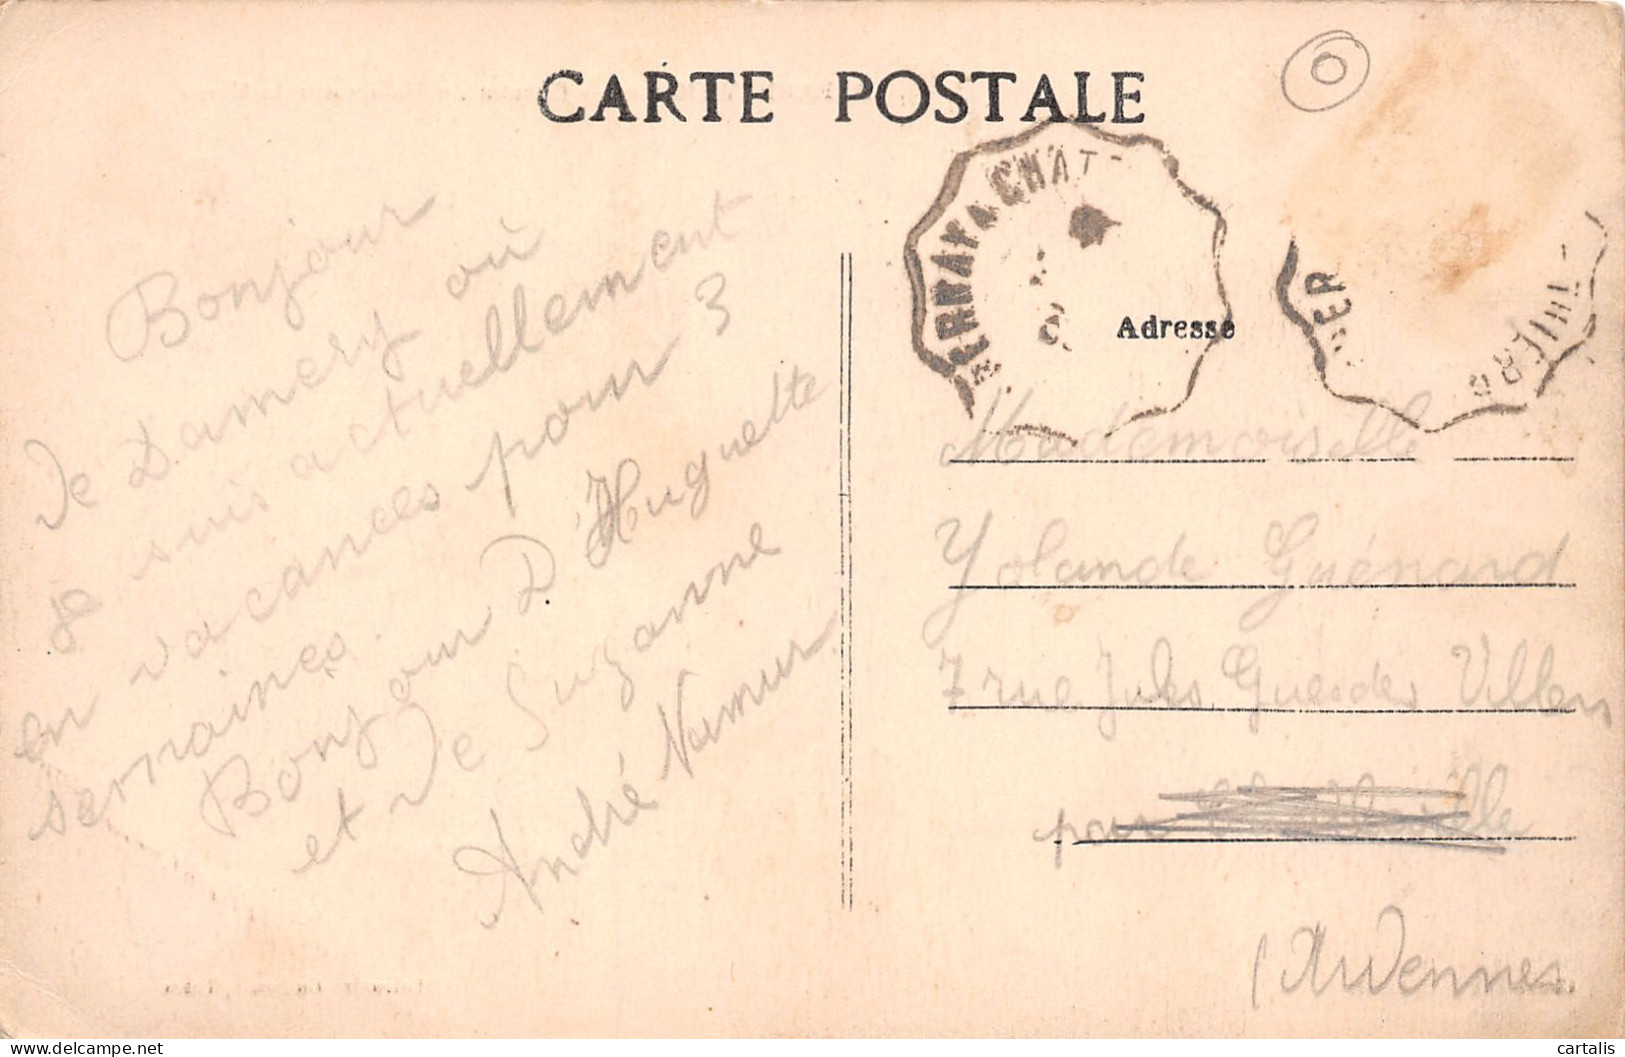 CARTE POSTALE
Bonjour
de Damery où
je suis actuellement
en vacances pour 3
semaines.
Bonjour D'Huguette
et de Suzanne
André Namur
ERNAY A CHAT
THIERS
Adresse
Mademoiselle
Yolande Guénard
7 rue Jules Guesdes Villers
pour
(Ardennes
delcampe.net
cartalis